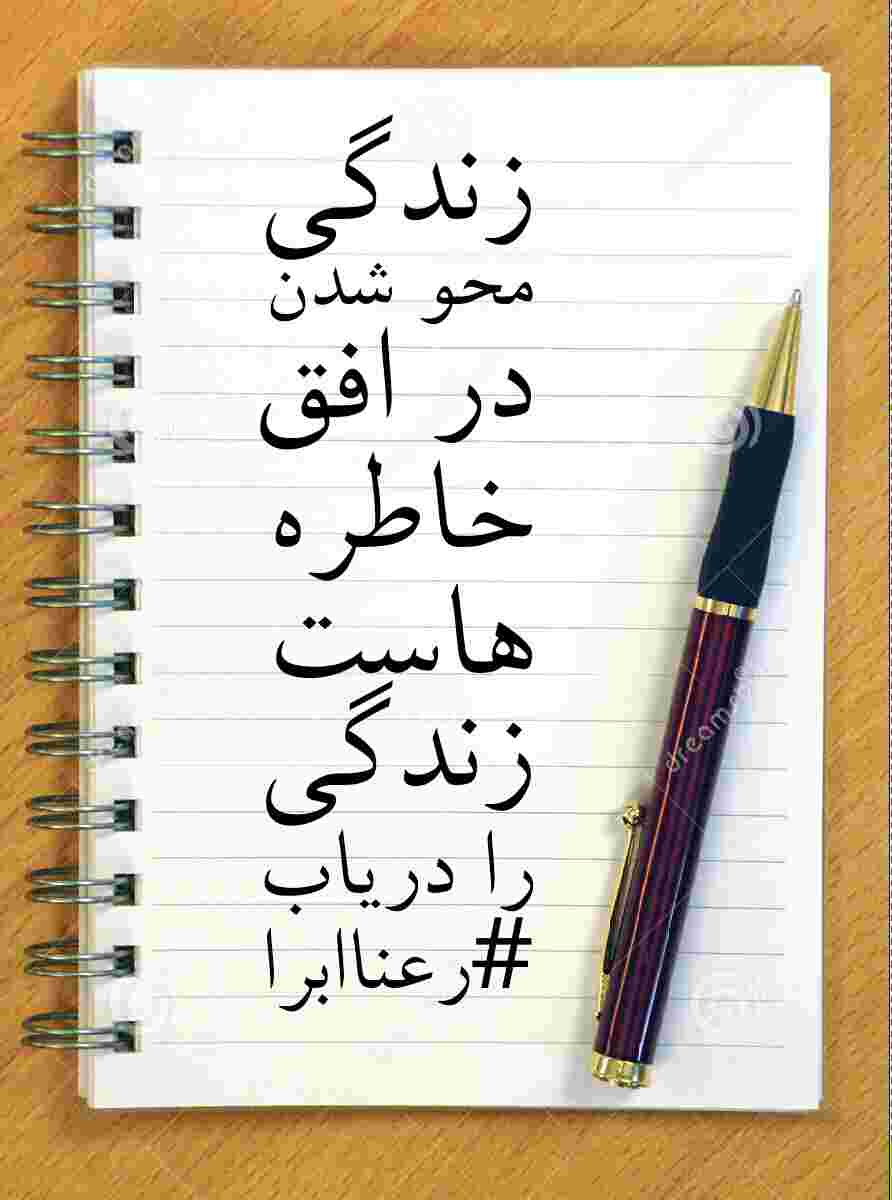 زندگی
محو شدن
در افق
خاطره
هاست
زندگی
را دریاب
#رعناابرا
dreams